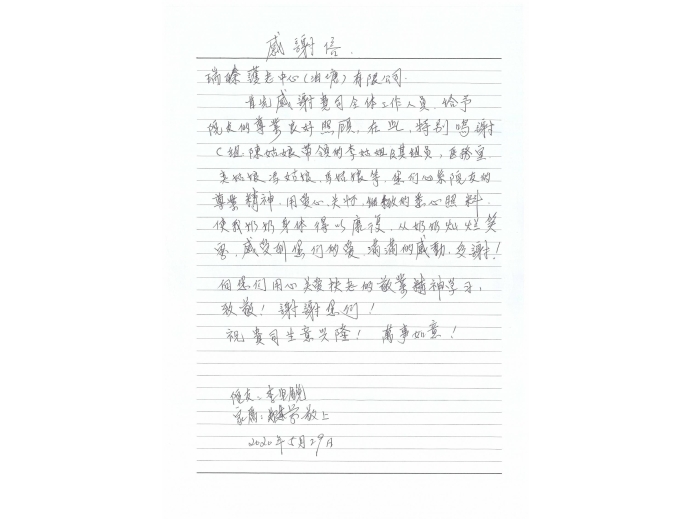 感謝信.
瑞臻護老中心(油塘)有限公司.
首先感謝貴司全体工作人員,給予
院友们專業良好照顧,在此,特别鳴謝
C組.陳姑娘带領的李姑娘及其組員,医務室
姑娘冯姑娘、姑娘等,您们心系院友的
專業精神,用愛心、关怀、細緻的悉心照料,
使我奶奶身体得以康復,从奶奶灿烂笑
容,感受到您们的愛,滿滿的感動,多謝!
向您们用心关爱扶老的敬業精神学习,
致敬!謝謝您们!
祝貴司生意兴隆! 萬事如意!
院友:李
家属:敬上
2020年5月29日